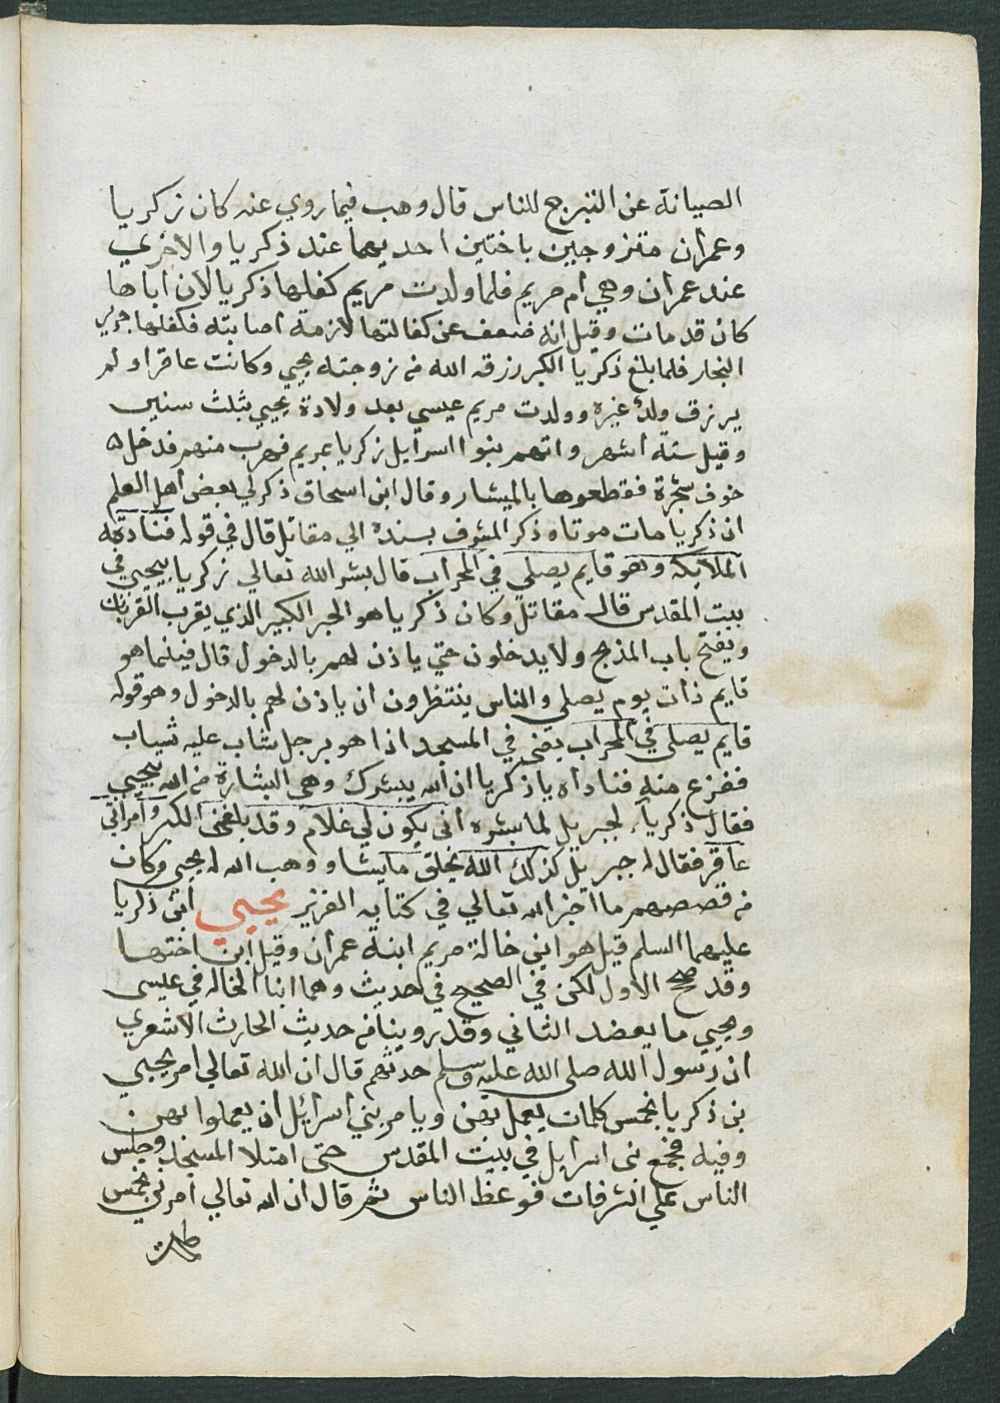 الصيانة عن التبرج للناس قال وهب فيما روي عنه كان زكريا
وعمران متزوجين باختين احديهما عند ذكريا والاخري
عند عمران وهي ام مريم فلما ولدت مريم كفلها ذكريا لان اباها
كان قد مات وقيل انه ضعف عن كفالتها لازمة اصابته فكفلها جريج
النجار فلما بلغ ذكريا الكبر رزقه الله من زوجته يحيي وكانت عاقرا ولم
يرزق ولدا غيره وولدت مريم عيسي بعد ولادة يحيي بثلث سنين
وقيل ستة اشهر واتهم بنوا اسرايل زكريا بمريم فهرب منهم فدخل
جوف شجرة فقطعوها بالميشار وقال ابن اسحاق ذكر لي بعض اهل العلم
ان ذكريا مات موتا وذكر المشرف بسنده الي مقاتل قال في قوله فنادته
الملايكة وهو قايم يصلي في المحراب قال بشر الله تعالي زكريا بيحيي في
بيت المقدس قال مقاتل وكان ذكريا هو الحبر الكبير الذي يقرب القربان
ويفتح باب المذبح ولا يدخلون حتي ياذن لهم بالدخول قال فبينما هو
قايم ذات يوم يصلي والناس ينتظرون ان ياذن لهم بالدخول وهو قوله
قايم يصلي في المحراب يعني في المسجد اذا هو برجل شاب عليه ثياب
ففزع منه فناداه ياذكريا ان الله يبشرك وهي البشارة من الله بيحيي
فقال ذكريا لجبريل لما بشره اني يكون لي غلام وقد بلغني الكبر وامراتي
عاقر فقال له جبريل كذلك الله يخلق ما يشا ووهب الله له يحيي وكان
من قصصهم ما اخبر الله تعالي في كتابه العزيز يحيي ابن ذكريا
عليهما السلم قيل هو ابن خالة مريم ابنة عمران وقيل ابن اختها
وقد صحح الاول لكن في الصحيح في حديث وهما ابنا الخالة في عيسى
ويحيي ما يعضد الثاني وقد روينا من حديث الحارث الاشعري
ان رسول الله صلى الله عليه وسلم حدثهم قال ان الله تعالي امر يحيي
بن ذكريا بخمس كلمات يعمل بهن ويامر بني اسرائل ان يعملوا بهن
وفيه فجمع بني اسرايل في بيت المقدس حتى امتلا المسجد وجلس
الناس علي الشرفات فوعظ الناس ثم قال ان الله تعالي امرني بخمس
كلمات